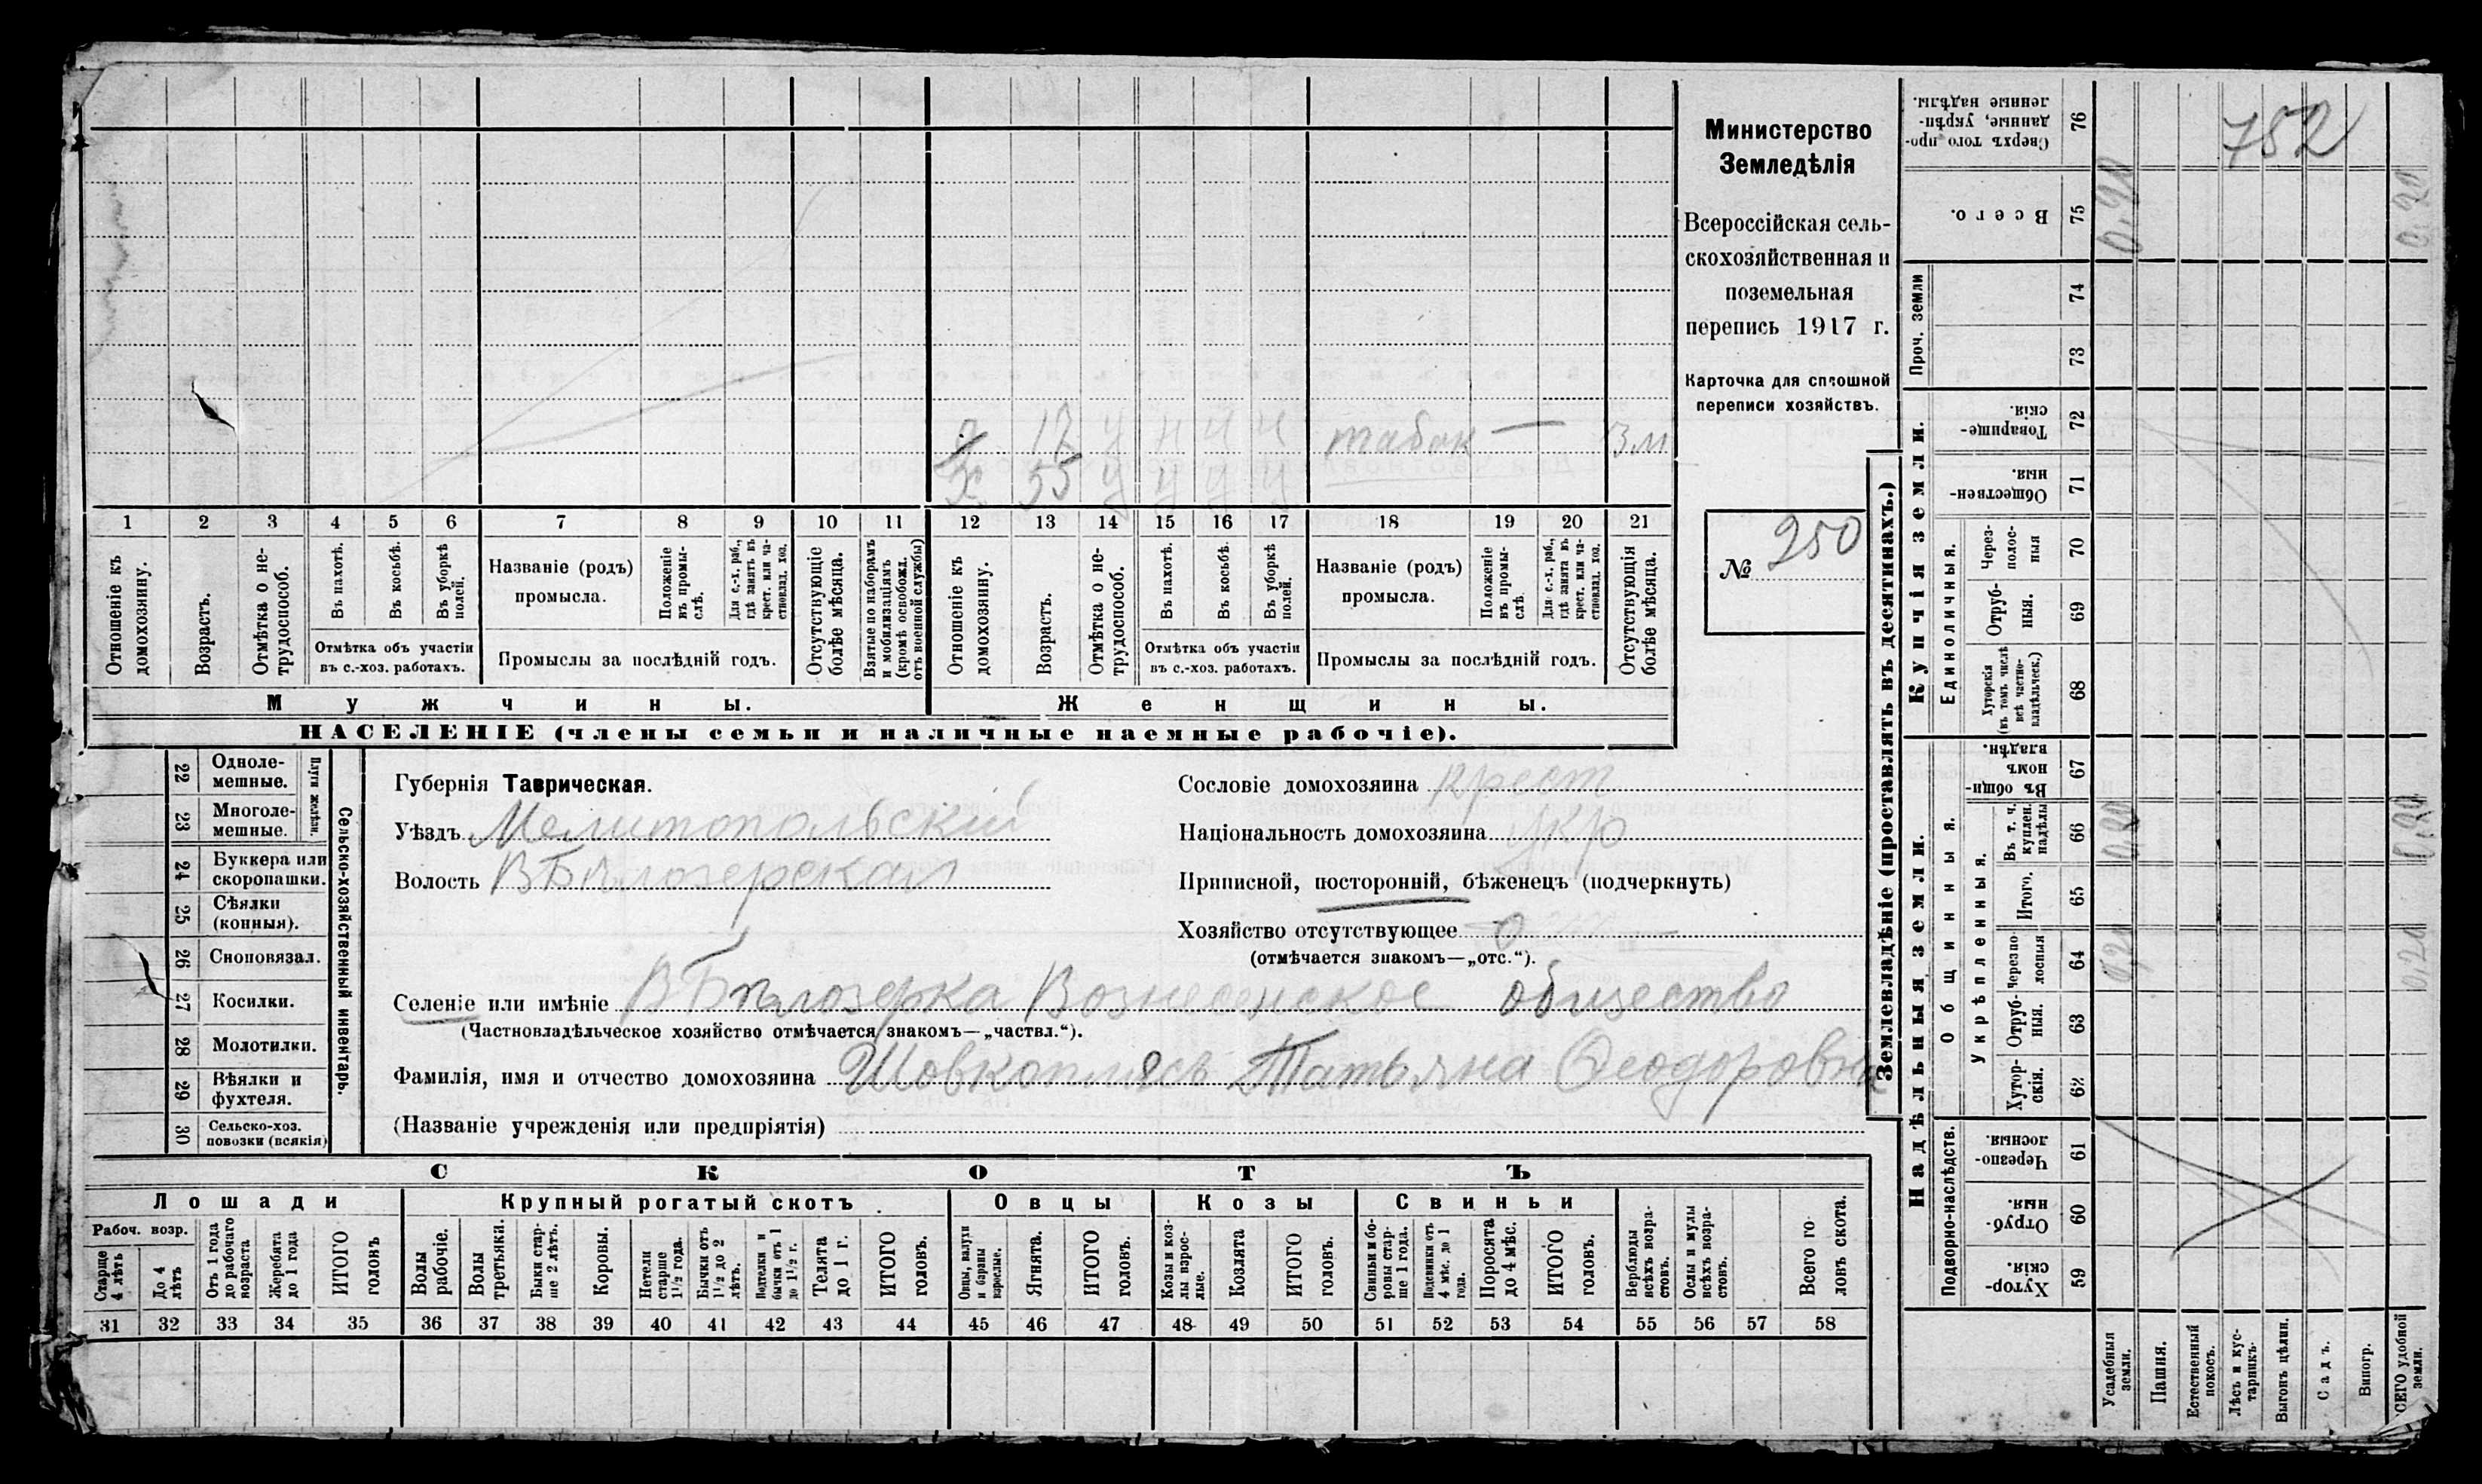 Министерство
Земледѣлія
Всероссійская сель-
скохозяйственная и
поземельная
перепись 1917 г.
Карточка для сплошной
переписи хозяйствъ.
№ 250
752
д 17 у н ч ч табак — 3м
х 55 у ч у у
1 2 3 4 5 6 7 8 9 10 11 12 13 14 15 16 17 18 19 20 21
Отношеніе къ домохозяину.
Возрастъ.
Отмѣтка о не-трудоспособ.
Въ пахотѣ.
Въ косьбѣ.
Въ уборкѣ полей.
Отмѣтка объ участіи въ с.-хоз. работахъ.
Названіе (родъ) промысла.
Положеніе въ промы-слѣ.
Для с.-х. раб., гдѣ занятъ въ крест. или ча-стновлад. хоз.
Промыслы за послѣдній годъ.
Отсутствующіе болѣе мѣсяца.
Взятые по наборамъ и мобилизаціямъ (кромѣ освобожд. отъ военной службы)
Отношеніе къ домохозяину.
Возрастъ.
Отмѣтка о не-трудоспособ.
Въ пахотѣ.
Въ косьбѣ.
Въ уборкѣ полей.
Отмѣтка объ участіи въ с.-хоз. работахъ.
Названіе (родъ) промысла.
Положеніе въ промы-слѣ.
Для с.-х. раб., гдѣ занята въ крест. или ча-ствовлад. хоз.
Промыслы за послѣдній годъ.
Отсутствующія болѣе мѣсяца.
Мужчины. Женщины.
НАСЕЛЕНІЕ (члены семьи и наличные наемные рабочіе).
22 Одноле-мешные.
23 Многоле-мешные.
Плуги желѣзн.
24 Буккера или скоропашки.
25 Сѣялки (конныя).
26 Сноповязал.
27 Косилки.
28 Молотилки.
29 Вѣялки и фухтеля.
30 Сельско-хоз. повозки (всякія)
Сельско-хозяйственный инвентарь.
Губернія Таврическая.
Уѣздъ Мелитопольскій
Волость ВБѣлозерская
Сословіе домохозяина крест
Національность домохозяина укр
Приписной, посторонній, бѣженецъ (подчеркнуть)
Хозяйство отсутствующее 0
(отмѣчается знакомъ—„отс.“).
Селеніе или имѣніе ВБѣлозерка Вознесенское общество
(Частновладѣльческое хозяйство отмѣчается знакомъ—„частвл.“).
Фамилія, имя и отчество домохозяина Шовкоплясъ Татьяна Ѳеодоровна
(Названіе учрежденія или предпріятія)
СКОТЪ
Лошади Крупный рогатый скотъ Овцы Козы Свиньи
Рабоч. возр.
Старше 4 лѣтъ
До 4 лѣтъ
Отъ 1 года до рабочаго возраста
Жеребята до 1 года
ИТОГО головъ
Волы рабочіе.
Волы третьяки.
Быки стар-ше 2 лѣтъ.
Коровы.
Нетели старше 1½ года.
Бычки отъ 1½ до 2 лѣтъ.
Подтелки и бычки отъ 1 до 1½ г.
Телята до 1 г.
ИТОГО головъ.
Овцы, валухи и бараны взрослые.
Ягнята.
ИТОГО головъ.
Козы и коз-лы взрос-лые.
Козлята
ИТОГО головъ.
Свиньи и бо-ровы стар-ше 1 года.
Подсвинки отъ 4 мѣс. до 1 года.
Поросята до 4 мѣс.
ИТОГО головъ.
Верблюды всѣхъ возра-стовъ.
Ослы и мулы всѣхъ возра-стовъ.
Всего го-ловъ скота.
31 32 33 34 35 36 37 38 39 40 41 42 43 44 45 46 47 48 49 50 51 52 53 54 55 56 57 58
Землевладѣніе (проставлять въ десятинахъ.)
Надѣльныя земли. Купчія земли. Проч. земли
Подворно-наслѣдств.
Общинныя.
Укрѣпленныя.
Единоличныя.
Сверхъ того про-данные, укрѣп-ленные надѣлы. 76
Всего. 75 0,20 0,20
74
73
Товарище-скія. 72
Обществен-ныя. 71
Через-полос-ныя 70
Отруб-ныя. 69
Хуторскія (въ томъ числѣ всѣ частно-владѣльческ.) 68
Въ общин-номъ владѣн. 67
Въ т. ч. куплен. надѣлы 66 0,20 0,20
Итого. 65
Черезпо-лосныя 64 0,20 0,20
Отруб-ныя. 63
Хутор-скія. 62
Черезпо-лосныя. 61
Отруб-ныя. 60
Хутор-скія. 59
Усадебныя земли.
Пашня.
Естественный покосъ.
Лѣсъ и кус-тарникъ.
Выгонъ цѣлин.
Садъ.
Виногр.
ВСЕГО удобной земли.